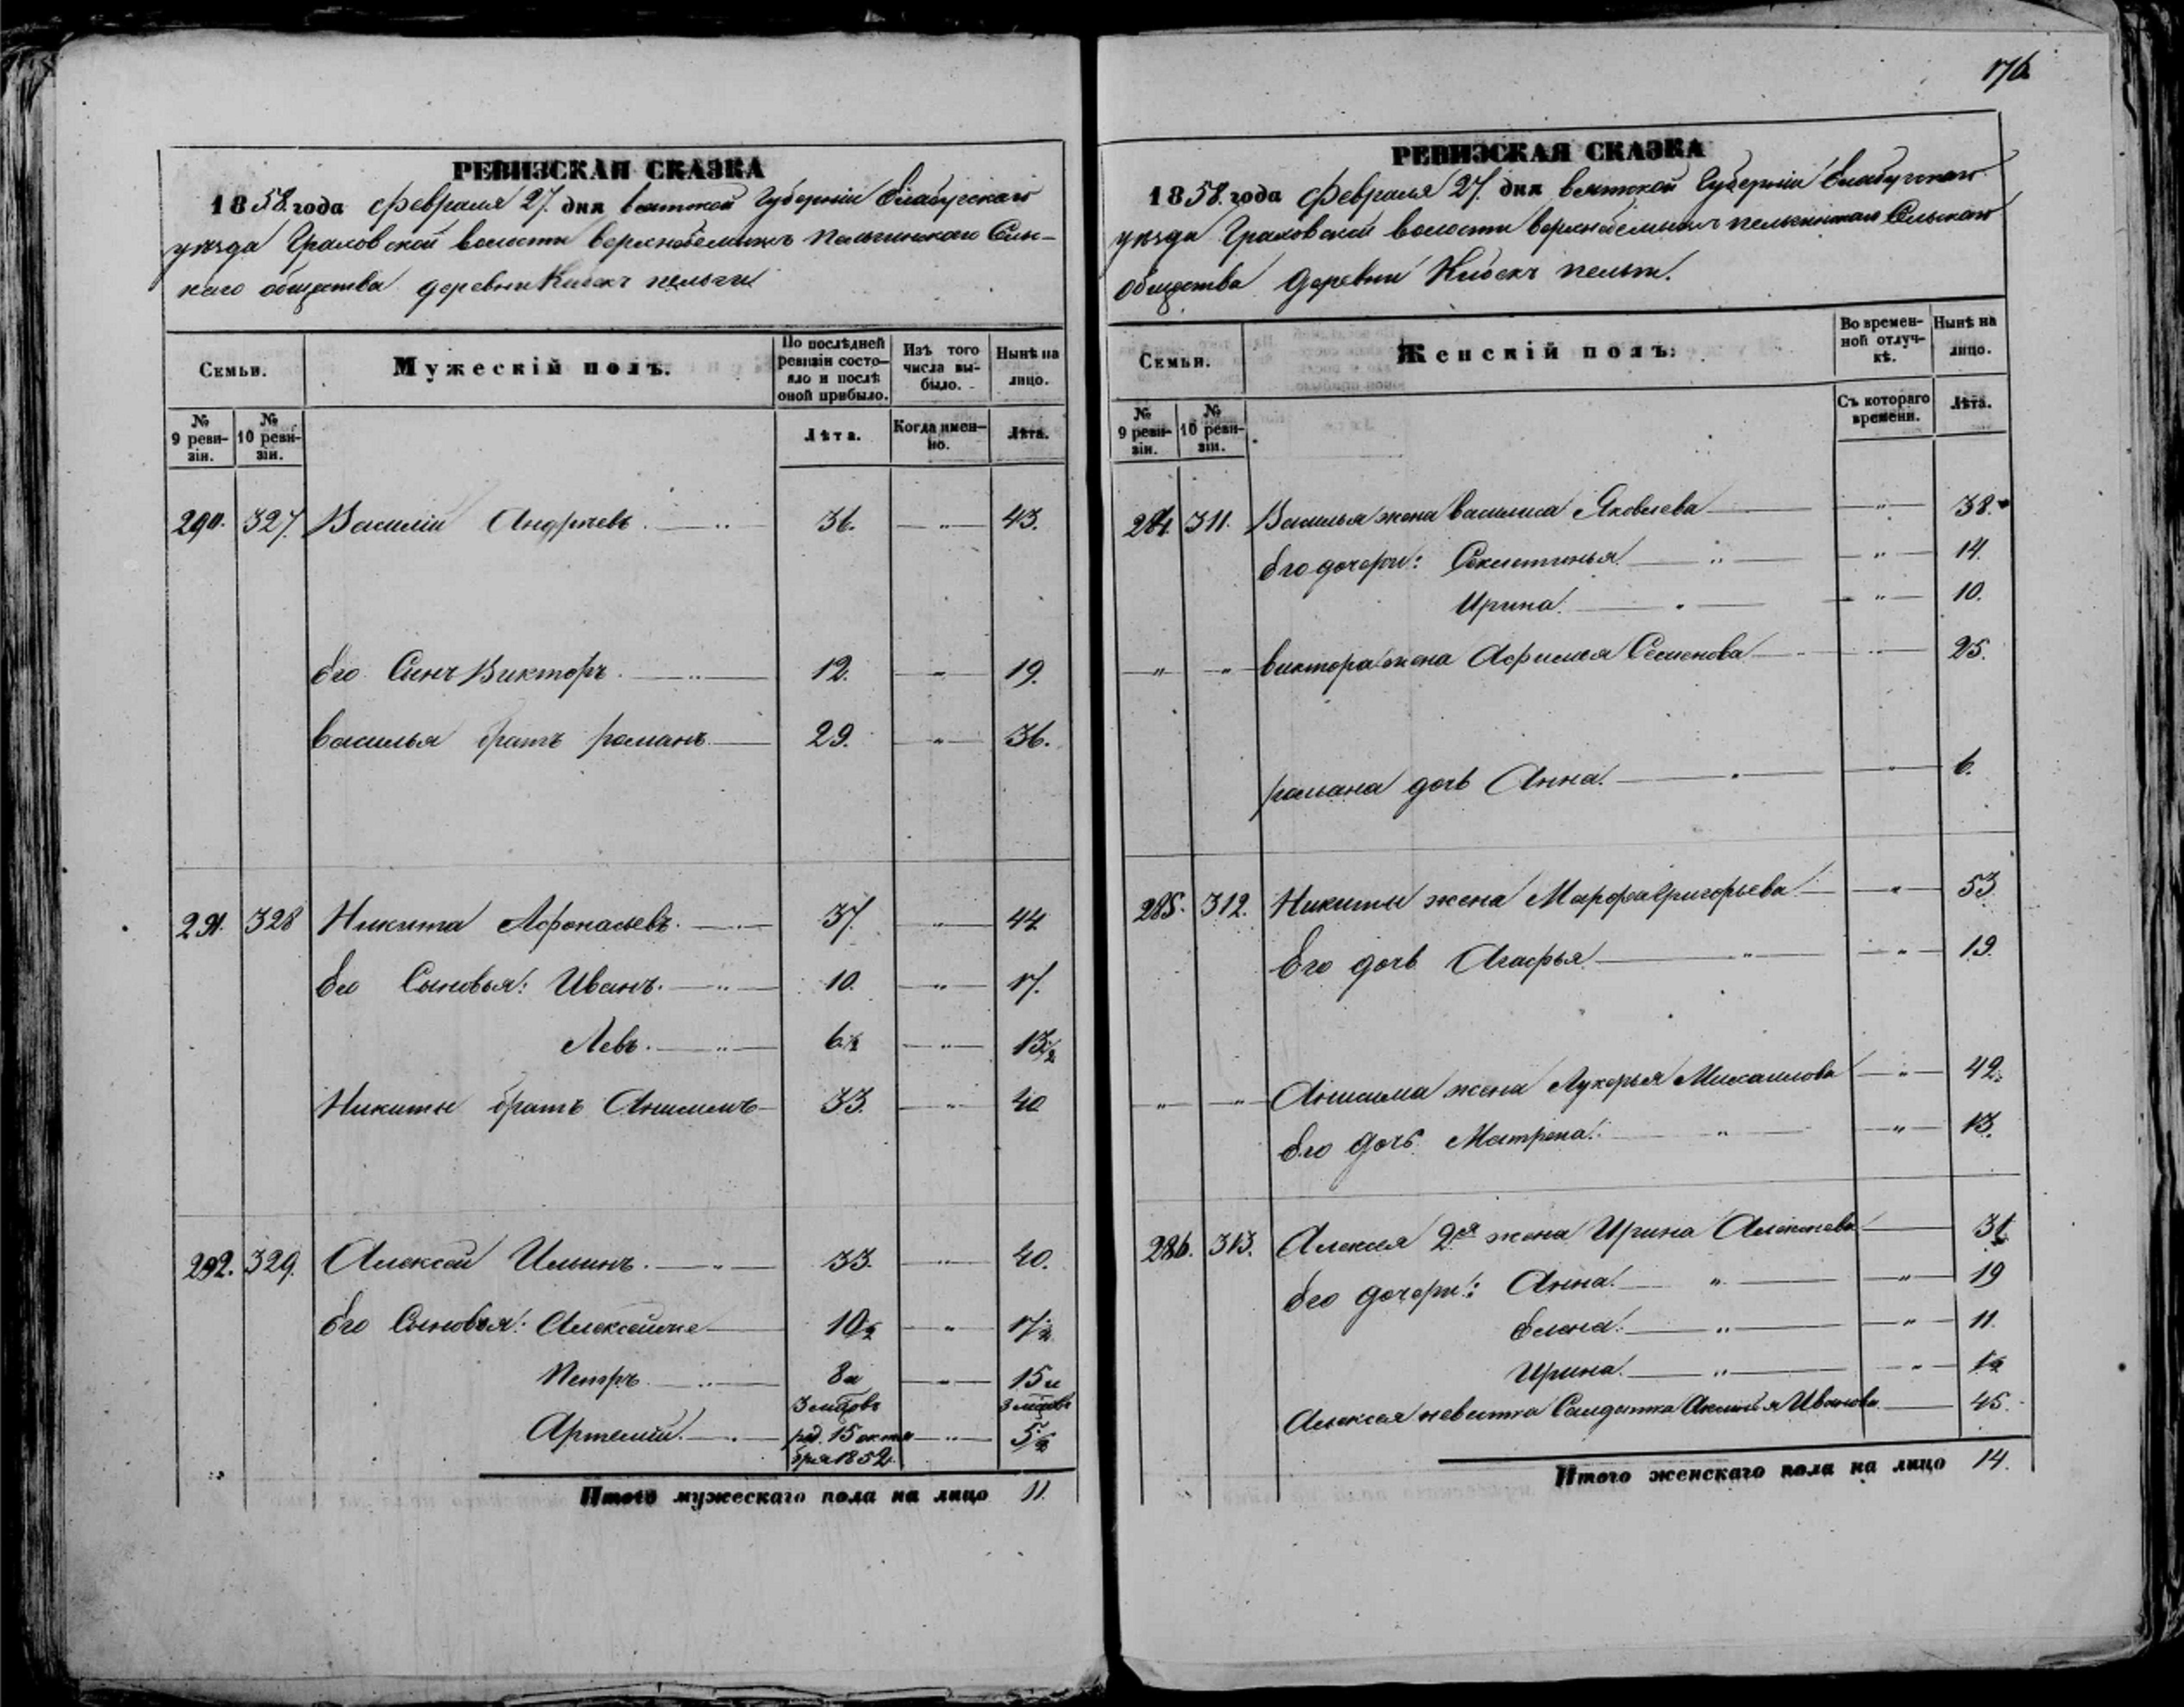 176
РЕВИЗСКАЯ СКАЗКА
1858 года февраля 27 дня вятской губерніи Елабугскаго
уѣзда Граховской волости верхнобемыжъ пельгинскаго Сель-
скаго общества деревни Кибекъ пельги
Семьи. Мужескій полъ. По послѣдней ревизіи состояло и послѣ оной прибыло. Изъ того числа выбыло. Нынѣ на лицо.
№ 9 ревизіи. № 10 ревизіи. Лѣта. Когда именно. Лѣта.
290. 327. Василій Андреевъ 36. " 43.
Его Сынъ Викторъ 12. " 19.
Василья братъ романъ 29. " 36.
291. 328 Никита Афонасьевъ 37. " 44
Его Сыновья: Иванъ 10. " 17.
Левъ 6½ " 13½
Никиты братъ Анисимъ 33. " 40
292. 329. Алексей Ильинъ 33. " 40.
Его Сыновья: Алексей 10½ " 17½
Петръ 8 и 3 мцовъ " 15 и 3 мцовъ
Артемій род. 15 октября 1852 " 5½
Итого мужескаго пола на лицо 11.
РЕВИЗСКАЯ СКАЗКА
1858 года февраля 27 дня вятской губерніи Елабугскаго
уѣзда Граховской волости верхнобемыжъ пельгинскаго Сельскаго
общества деревни Кибекъ пельги.
Семьи. Женскій полъ. Во временной отлучкѣ. Нынѣ на лицо.
№ 9 ревизіи. № 10 ревизіи. Съ котораго времени. Лѣта.
284. 311. Василья жена Василиса Яковлева " 38.
Его дочери: Секлетинья " 14.
Ирина " 10.
" " Виктора жена Афимья Семенова " 25.
романа дочь Анна. " 6.
285. 312. Никиты жена Марфа Григорьева " 53
Его дочь Агафья " 19.
" " Анисима жена Лукерья Михаилова " 42.
Его дочь Матрена. " 13.
286. 313. Алексея 2я жена Ирина Алексеева
Его дочери: Анна. " 19
Елена. " 11.
Ирина.
Алексея невестка Салдатка Иванова 45.
Итого женскаго пола на лицо 14.